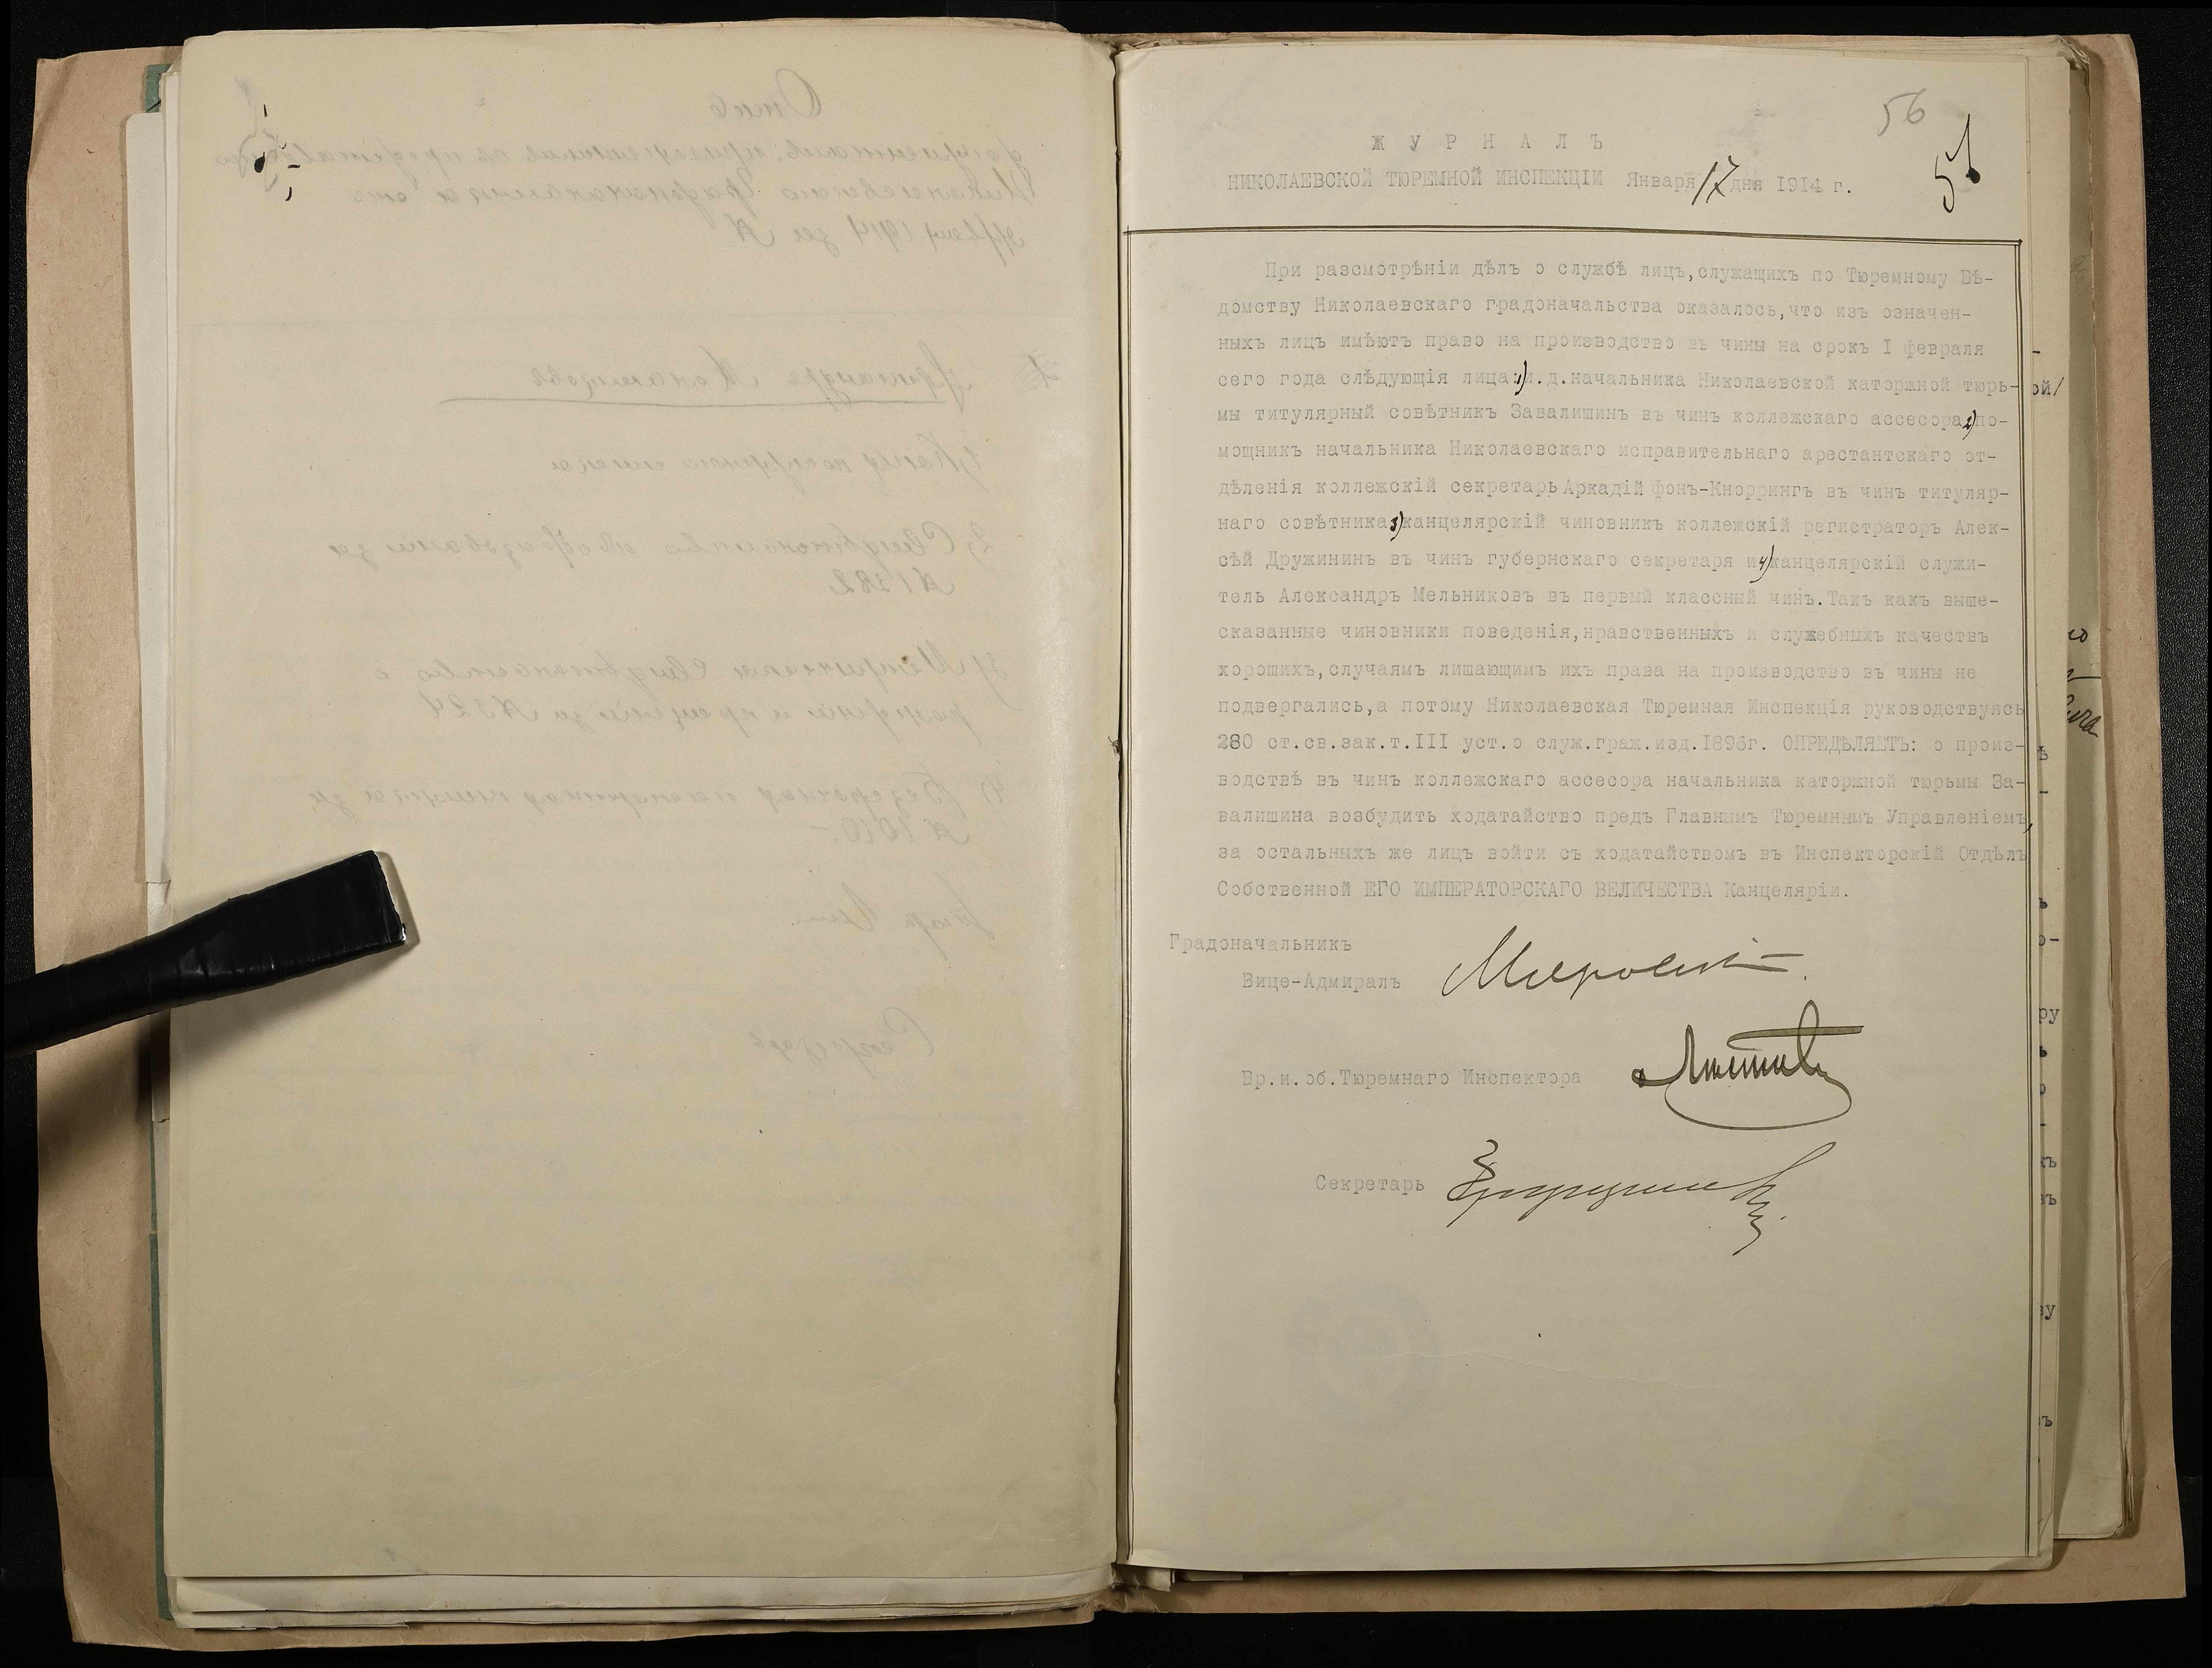 56
Ж У Р Н А Л Ъ
НИКОЛАЕВСКОЙ ТЮРЕМНОЙ ИНСПЕКЦІИ Января 17 дня 1914 г.
При разсмотрѣніи дѣлъ о службѣ лицъ,служащихъ по Тюремному Вѣ-
домству Николаевскаго градоначальства оказалось,что изъ означен-
ныхъ лицъ имѣютъ право на производство въ чины на срокъ I февраля
сего года слѣдующія лица: 1) и.д.начальника Николаевской каторжной тюрь-
мы титулярный совѣтникъ Завалишинъ въ чинъ коллежскаго ассесора 2) по-
мощникъ начальника Николаевскаго исправительнаго арестантскаго от-
дѣленія коллежскій секретарь Аркадій фонъ-Кноррингъ въ чинъ титуляр-
наго совѣтника 3) канцелярскій чиновникъ коллежскій регистраторъ Алек-
сѣй Дружининъ въ чинъ губернскаго секретаря и 4) канцелярскій служи-
тель Александръ Мельниковъ въ первый классный чинъ.Такъ какъ выше-
сказанные чиновники поведенія,нравственныхъ и служебныхъ качествъ
хорошихъ,случаямъ лишающимъ ихъ права на производство въ чины не
подвергались,а потому Николаевская Тюремная Инспекція руководствуясь
280 ст.св.зак.т.III уст.о служ.граж.изд.1896г. ОПРЕДѢЛЯЕТЪ: о произ-
водствѣ въ чинъ коллежскаго ассесора начальника каторжной тюрьмы За-
валишина возбудить ходатайство предъ Главнымъ Тюремнымъ Управленіемъ,
за остальныхъ же лицъ войти съ ходатайствомъ въ Инспекторскій Отдѣлъ
Собственной ЕГО ИМПЕРАТОРСКАГО ВЕЛИЧЕСТВА Канцеляріи.
Градоначальникъ
Вице-Адмиралъ
Вр.и.об.Тюремнаго Инспектора
Секретарь